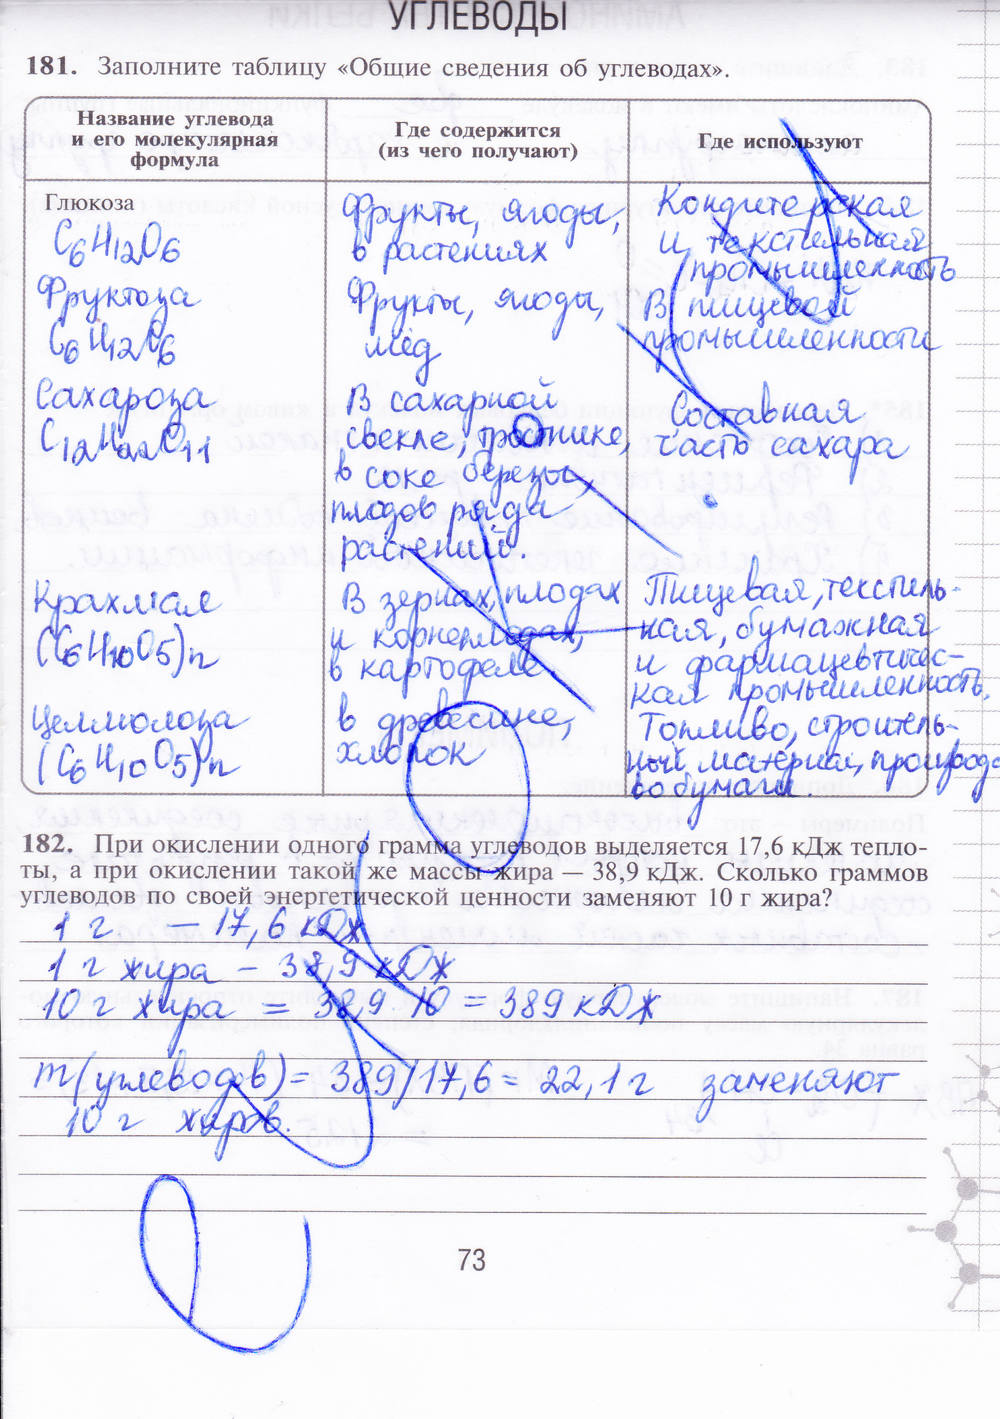 УГЛЕВОДЫ
181. Заполните таблицу «Общие сведения об углеводах».
Название углевода
и его молекулярная
формула
Где содержится
(из чего получают)
Где используют
Глюкоза
C6H12O6
Фрукты, ягоды,
в растениях
Кондитерская
и текстильная
промышленность
Фруктоза
C6H12O6
Фрукты, ягоды,
мёд
В пищевой
промышленности
Сахароза
C12H22O11
В сахарной
свекле, тростнике,
в соке березы,
плодов ряда
растений
Составная
часть сахара
Крахмал
(C6H10O5)n
В зернах, плодах
и корнеплодах,
в картофеле
Пищевая, текстиль-
ная, бумажная
и фармацевтичес-
кая промышленность.
Целлюлоза
(C6H10O5)n
в древесине,
хлопок
Топливо, строитель-
ный материал, производст-
во бумаги
182. При окислении одного грамма углеводов выделяется 17,6 кДж тепло-
ты, а при окислении такой же массы жира — 38,9 кДж. Сколько граммов
углеводов по своей энергетической ценности заменяют 10 г жира?
1 г – 17,6 кДж
1 г жира – 38,9 кДж
10 г жира = 38,9 · 10 = 389 кДж
m(углеводов) = 389/17,6 = 22,1 г заменяют
10 г жиров.
73